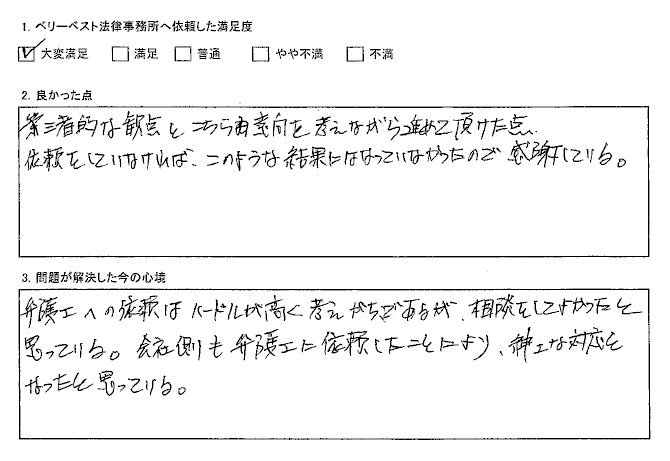 1. ベリーベスト法律事務所へ依頼した満足度
大変満足 満足 普通 やや不満 不満
2. 良かった点
第三者的な観点とこちら両意向を考えながら進めて頂けた点、
依頼をしていなければ、このような結果にはなっていなかったので感謝している。
3. 問題が解決した今の心境
弁護士への依頼はハードルが高く考えがちであるが、相談をしてよかったと
思っている。会社側も弁護士に依頼したことにより、紳士な対応と
なったと思っている。